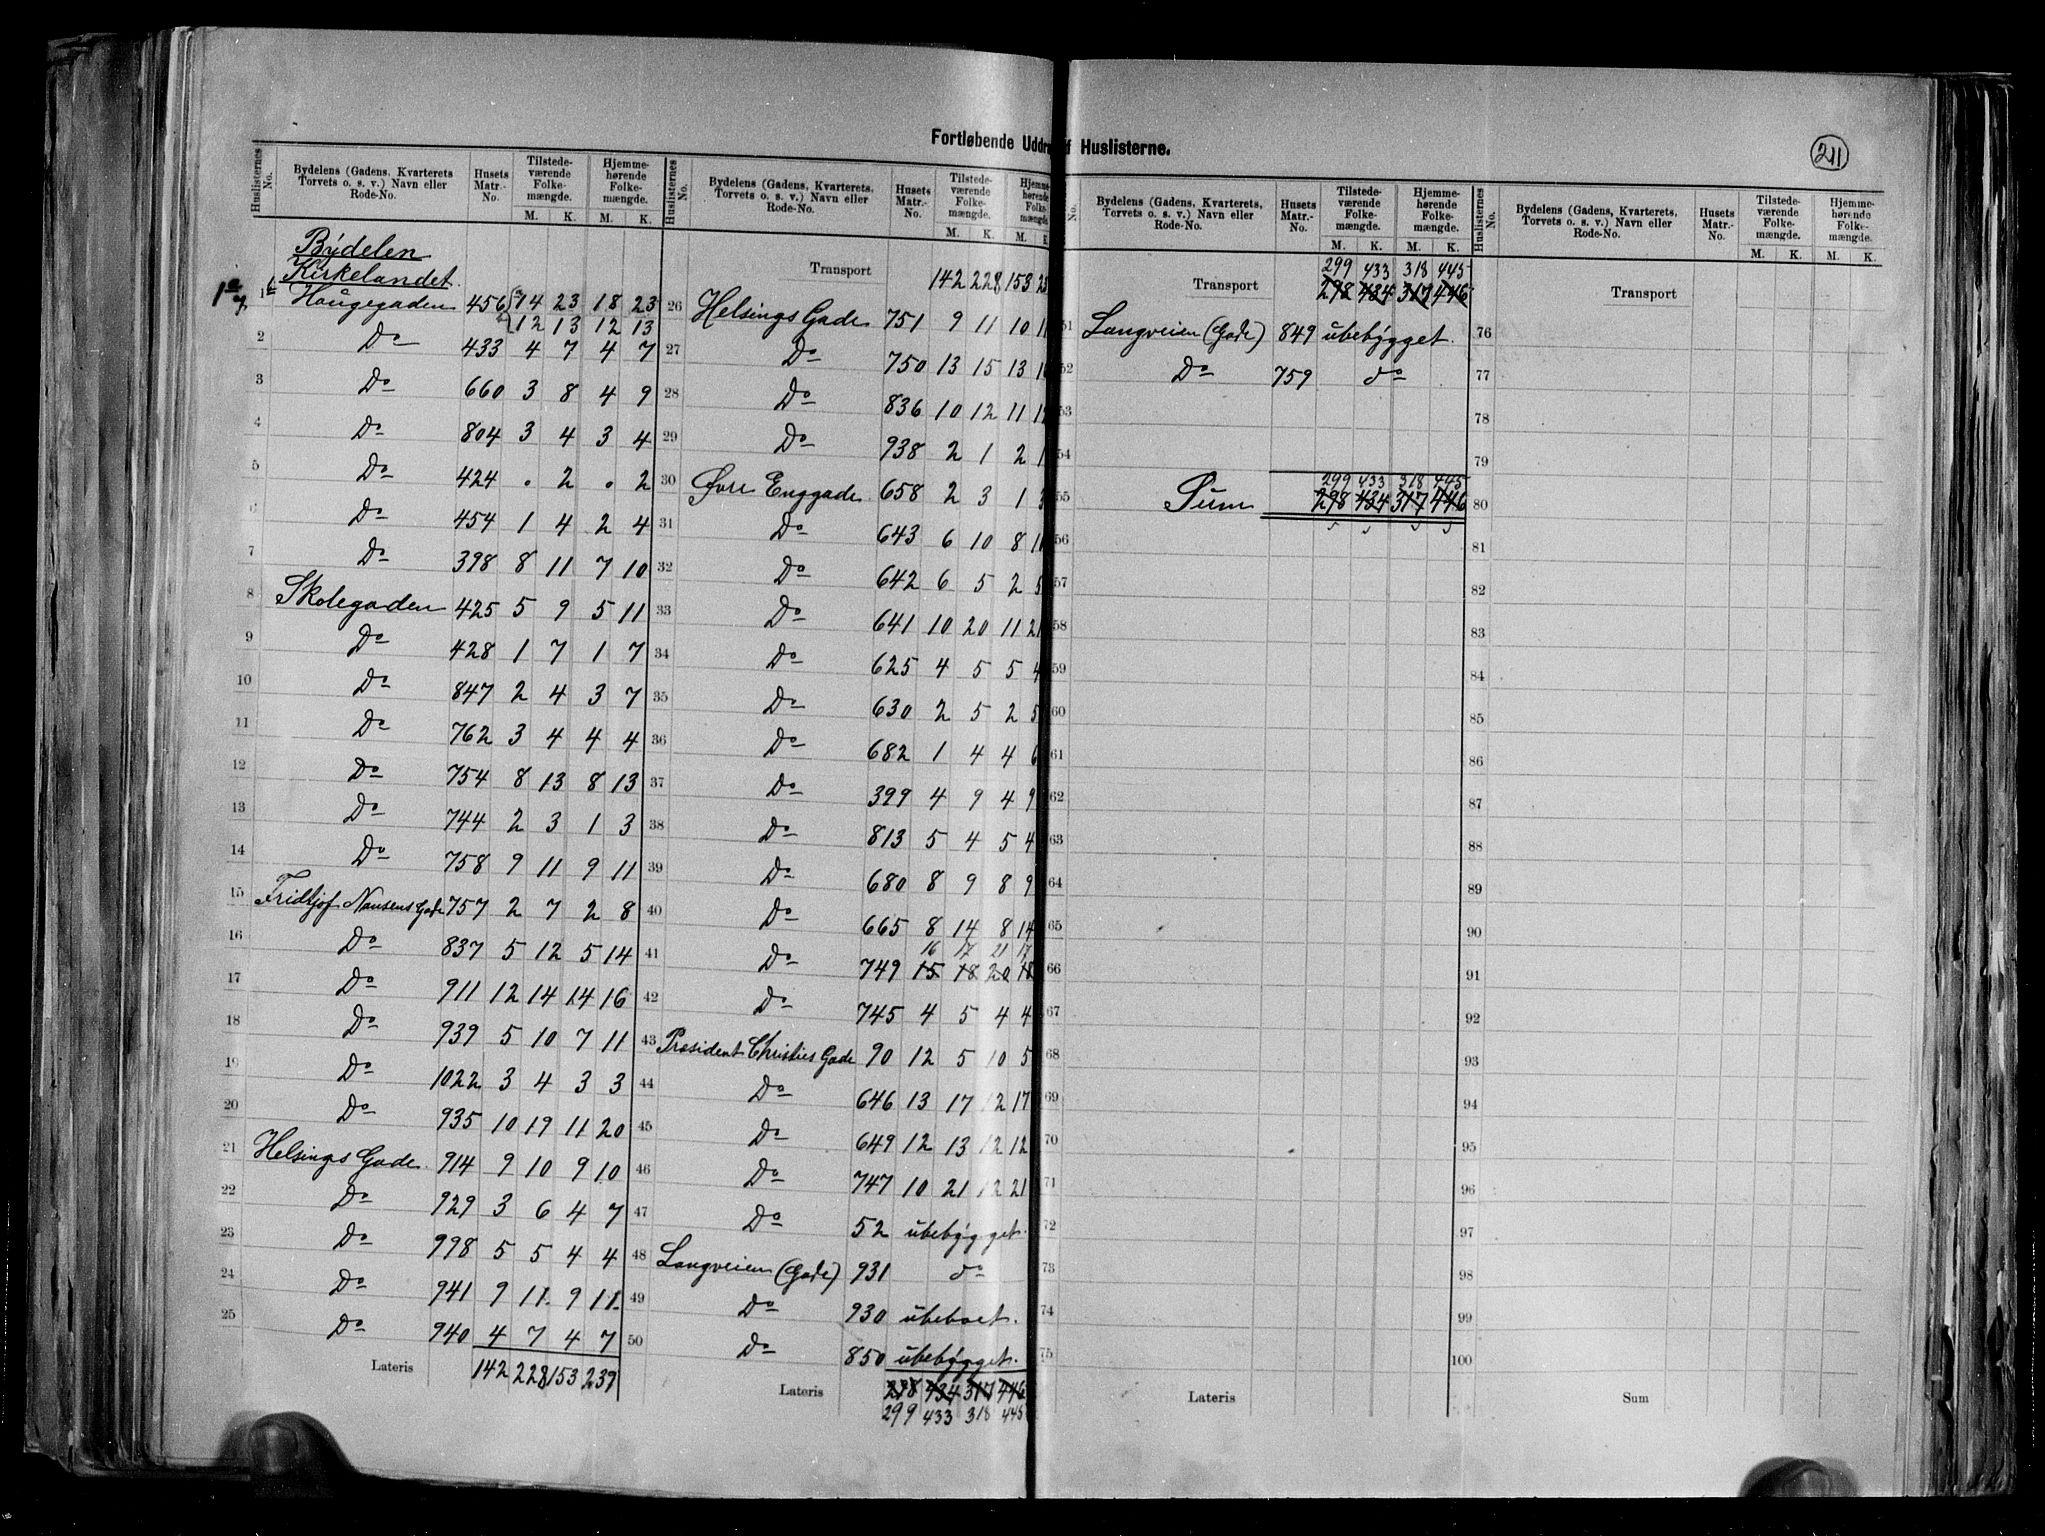 Fortløbende Uddr f Huslisterne.
211
Huslisternes No. | Bydelens (Gadens, Kvarterets Torvets o. s. v.) Navn eller Rode-No. | Husets Matr.-No. | Tilstede-værende Folke-mængde. M. K. | Hjemme-hørende Folke-mængde. M. K.
Bydelen
Kirkelandet.
1 a Haugegaden 456 a 14 23 18 23
b 12 13 12 13
2 Do 433 4 7 4 7
3 Do 660 3 8 4 9
4 Do 804 3 4 3 4
5 Do 424 . 2 . 2
6 Do 454 1 4 2 4
7 Do 398 8 11 7 10
8 Skolegaden 425 5 9 5 11
9 Do 428 1 7 1 7
10 Do 847 2 4 3 7
11 Do 762 3 4 4 4
12 Do 754 8 13 8 13
13 Do 744 2 3 1 3
14 Do 758 9 11 9 11
15 Fridtjof Nansens Gade 757 2 7 2 8
16 Do 837 5 12 5 14
17 Do 911 12 14 14 16
18 Do 939 5 10 7 11
19 Do 1022 3 4 3 3
20 Do 935 10 19 11 20
21 Helsings Gade. 914 9 10 9 10
22 Do 929 3 6 4 7
23 Do 998 5 5 4 4
24 Do 941 9 11. 9 11.
25 Do 940 4 7 4 7
Lateris 142 228 153 239
Huslisternes No. | Bydelens (Gadens, Kvarterets, Torvets o. s. v.) Navn eller Rode-No. | Husets Matr.-No. | Tilstede-værende Folke-mængde. M. K. | Hjemme-hørende Folke-mængde M. K.
Transport 142 228 153 23
26 Helsings Gade 751 9 11 10 1
27 Do 750 13 15 13 1
28 Do 836 10 12 11 1
29 Do 938 2 1 2 1
30 Øvre Enggade 658 2 3 1 3
31 Do 643 6 10 8 1
32 Do 642 6 5 2 5
33 Do 641 10 20 11 21
34 Do 625 4 5 5 4
35 Do 630 2 5 2 5
36 Do 682 1 4 4 6
37 Do 399 4 9 4 9
38 Do 813 5 4 5 4
39 Do 680 8 9 8 9
40 Do 665 8 14 8 14
16 17 21 17
41 Do 749 15 18 20 18
42 Do 745 4 5 4 4
43 Præsident Christies Gade 90 12 5 10 5
44 Do 646 13 17 12 17
45 Do 649 12 13 12 12
46 Do 747 10 21 12 21
47 Do 52 ubebygget.
48 Langveien (Gade) 931 do
49 Do 930 ubeboet.
50 Do 850 ubebygget.
Lateris 298 434 317 446
299 433 318 445
No. | Bydelens (Gadens, Kvarterets, Torvets o. s. v.) Navn eller Rode-No. | Husets Matr.-No. | Tilstede-værende Folke-mængde. M. K. | Hjemme-hørende Folke-mængde. M. K.
299 433 318 445
Transport 298 434 317 446
51 Langveien (Gade) 849 ubebygget.
52 Do 759 do
53
54
299 433 318 445
55 Sum 298 434 317 446
56
57
58
59
60
61
62
63
64
65
66
67
68
69
70
71
72
73
74
75
Lateris
Huslisternes No. | Bydelens (Gadens, Kvarterets, Torvets o. s. v.) Navn eller Rode-No. | Husets Matr.-No. | Tilstede-værende Folke-mængde. M. K. | Hjemme-hørende Folke-mængde. M. K.
Transport
76
77
78
79
80
81
82
83
84
85
86
87
88
89
90
91
92
93
94
95
96
97
98
99
100
Sum